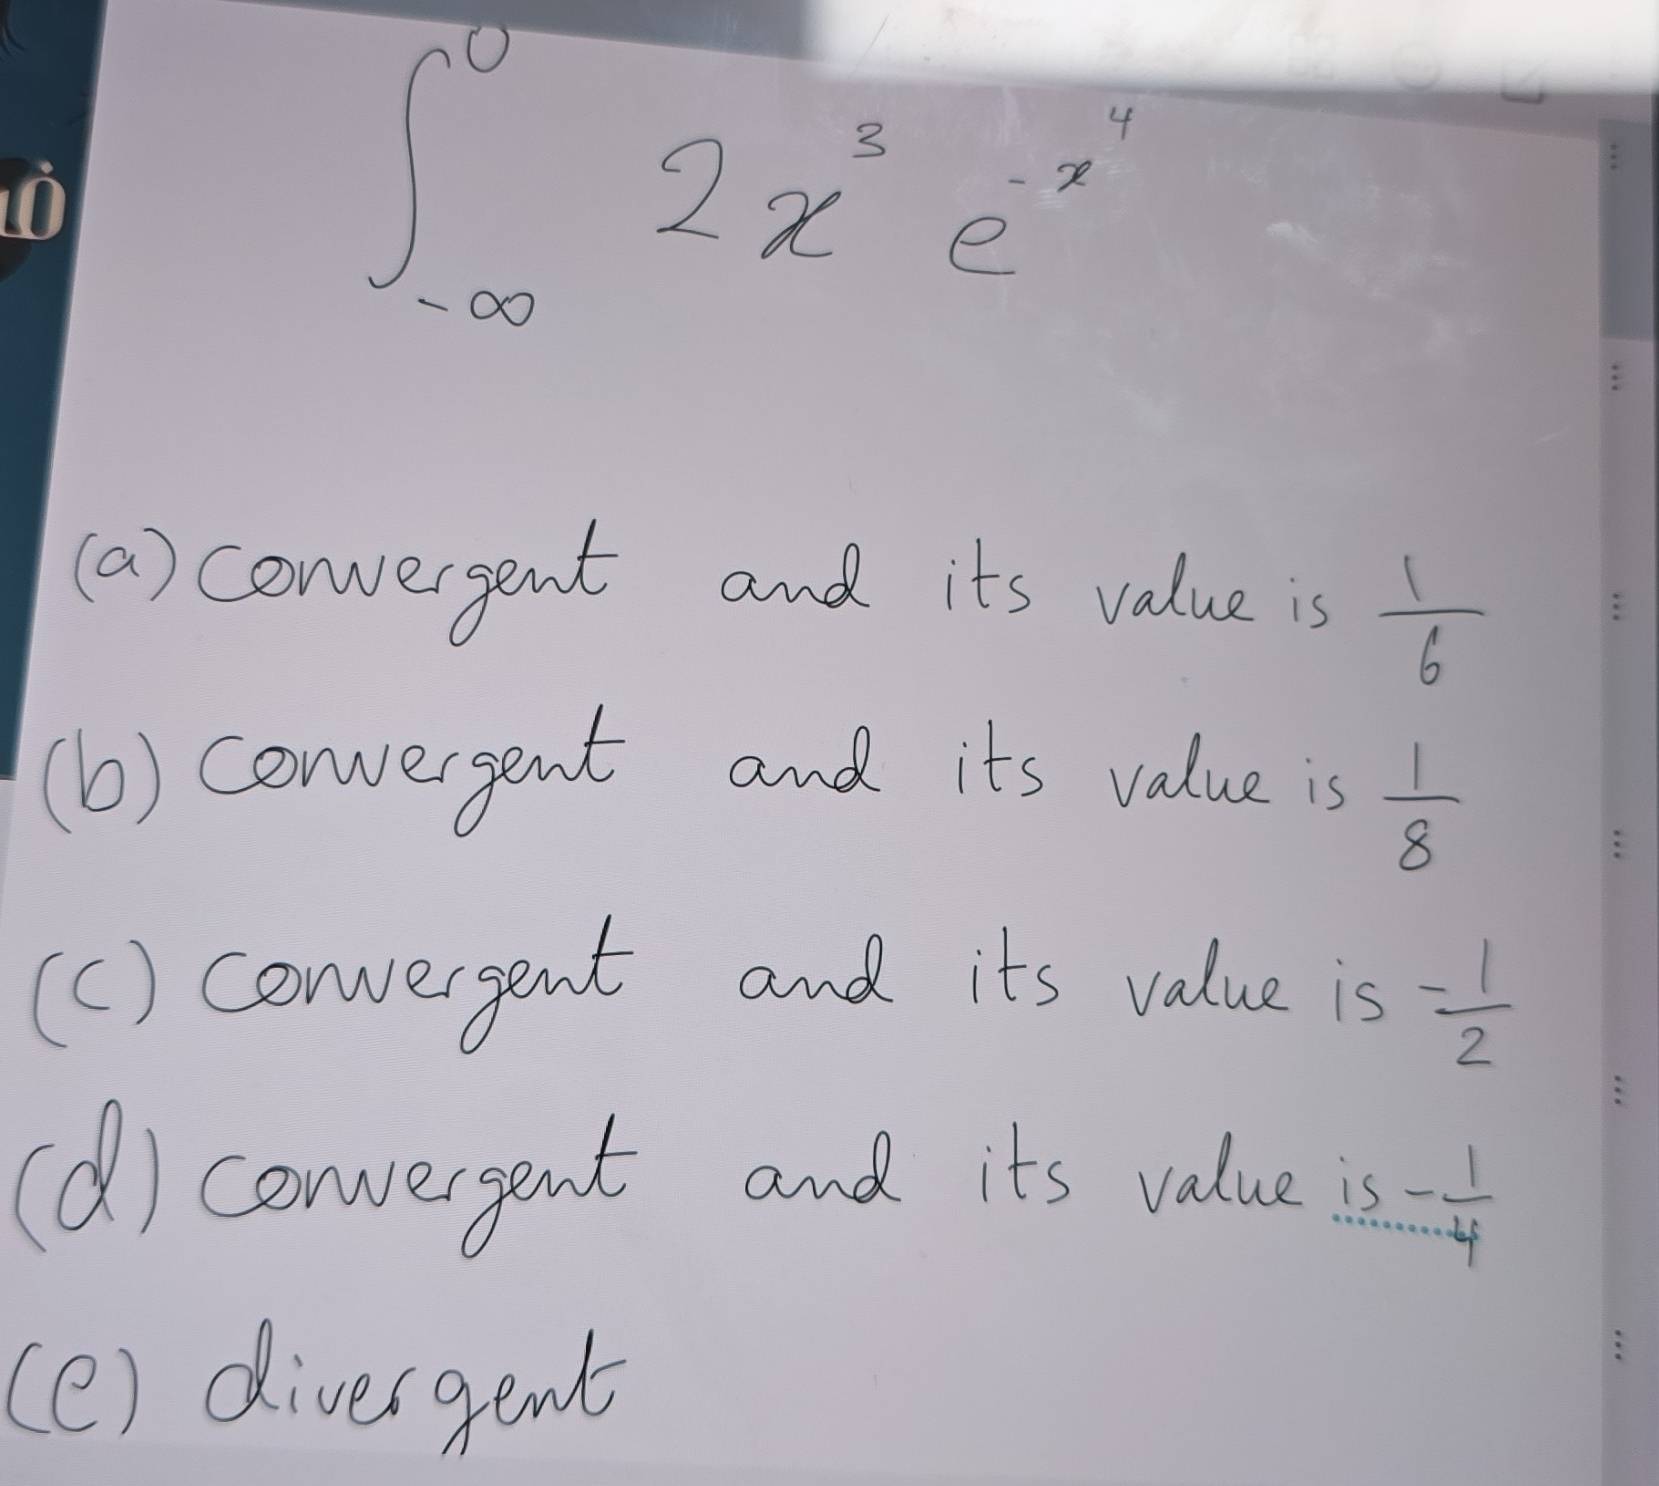 ∫_{-∞}^{0} 2x^3 e^{-x^4}
(a) convergent and its value is 1/6
(b) convergent and its value is 1/8
(c) convergent and its value is -1/2
(d) convergent and its value is -1/4
(e) divergent